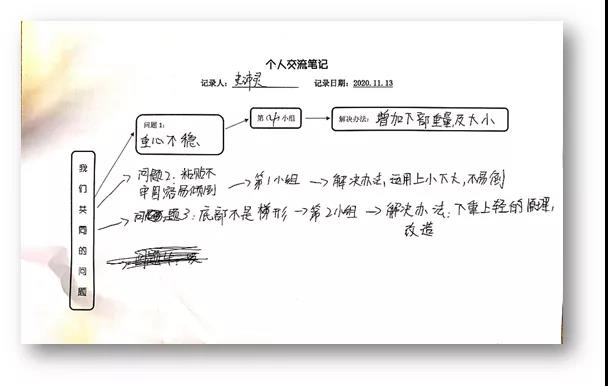 个人交流笔记
记录人: 记录日期: 2020.11.13
我们共同的问题
问题1:
重心不稳
第 小组
解决办法: 增加下部重量及大小
问题2: 粘贴不
牢固容易倾倒
第1小组
解决办法, 运用上小下大, 不易倒
问题3: 底部不是梯形
第2小组
解决办法: 下重上轻的原理,
改造